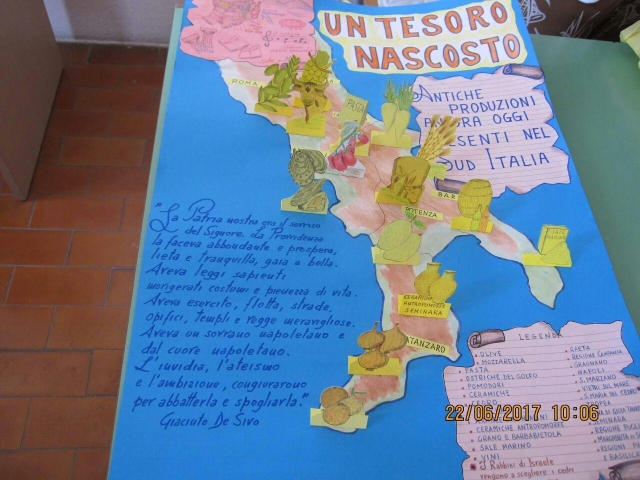 UN TESORO
NASCOSTO
ANTICHE
PRODUZIONI
ANCORA OGGI
PRESENTI NEL
SUD ITALIA
ROMA
PASTA
BAR
POTENZA
CERAMICHE
ANTROPOMORFE
SEMINARA
CATANZARO
"La Patria nostra era il sorriso
del Signore. La Provvidenza
la faceva abbondante e prospera,
lieta e tranquilla, gaia e bella.
Aveva leggi sapienti
morigerati costumi e pienezza di vita.
Aveva esercito, flotta, strade,
opifici, templi e regge meravigliose.
Aveva un sovrano napoletano e
dal cuore napoletano.
L'invidia, l'ateismo
e l'ambizione, congiurarono
per abbatterla e spogliarla."
Giacinto De Sivo
LEGENDA
• OLIVE
• MOZZARELLA
• PASTA
• OSTRICHE DEL GOLFO
• POMODORI
• CERAMICHE
• CEDRO
• CERAMICHE ANTROPOMORFE
• GRANO E BARBABIETOLA
• SALE MARINO
• VINI
• I Rabbini di Israele
vengono a scegliere i cedri
• GAETA
• REGIONE CAMPANIA
• GRAGNANO
• NAPOLI
• S. MARZANO
• VIETRI SUL MARE
• S. MARIA DEL CEDRO
TROPEA
SEMINARA
REGIONE PUGLIA
22/06/2017 10:06